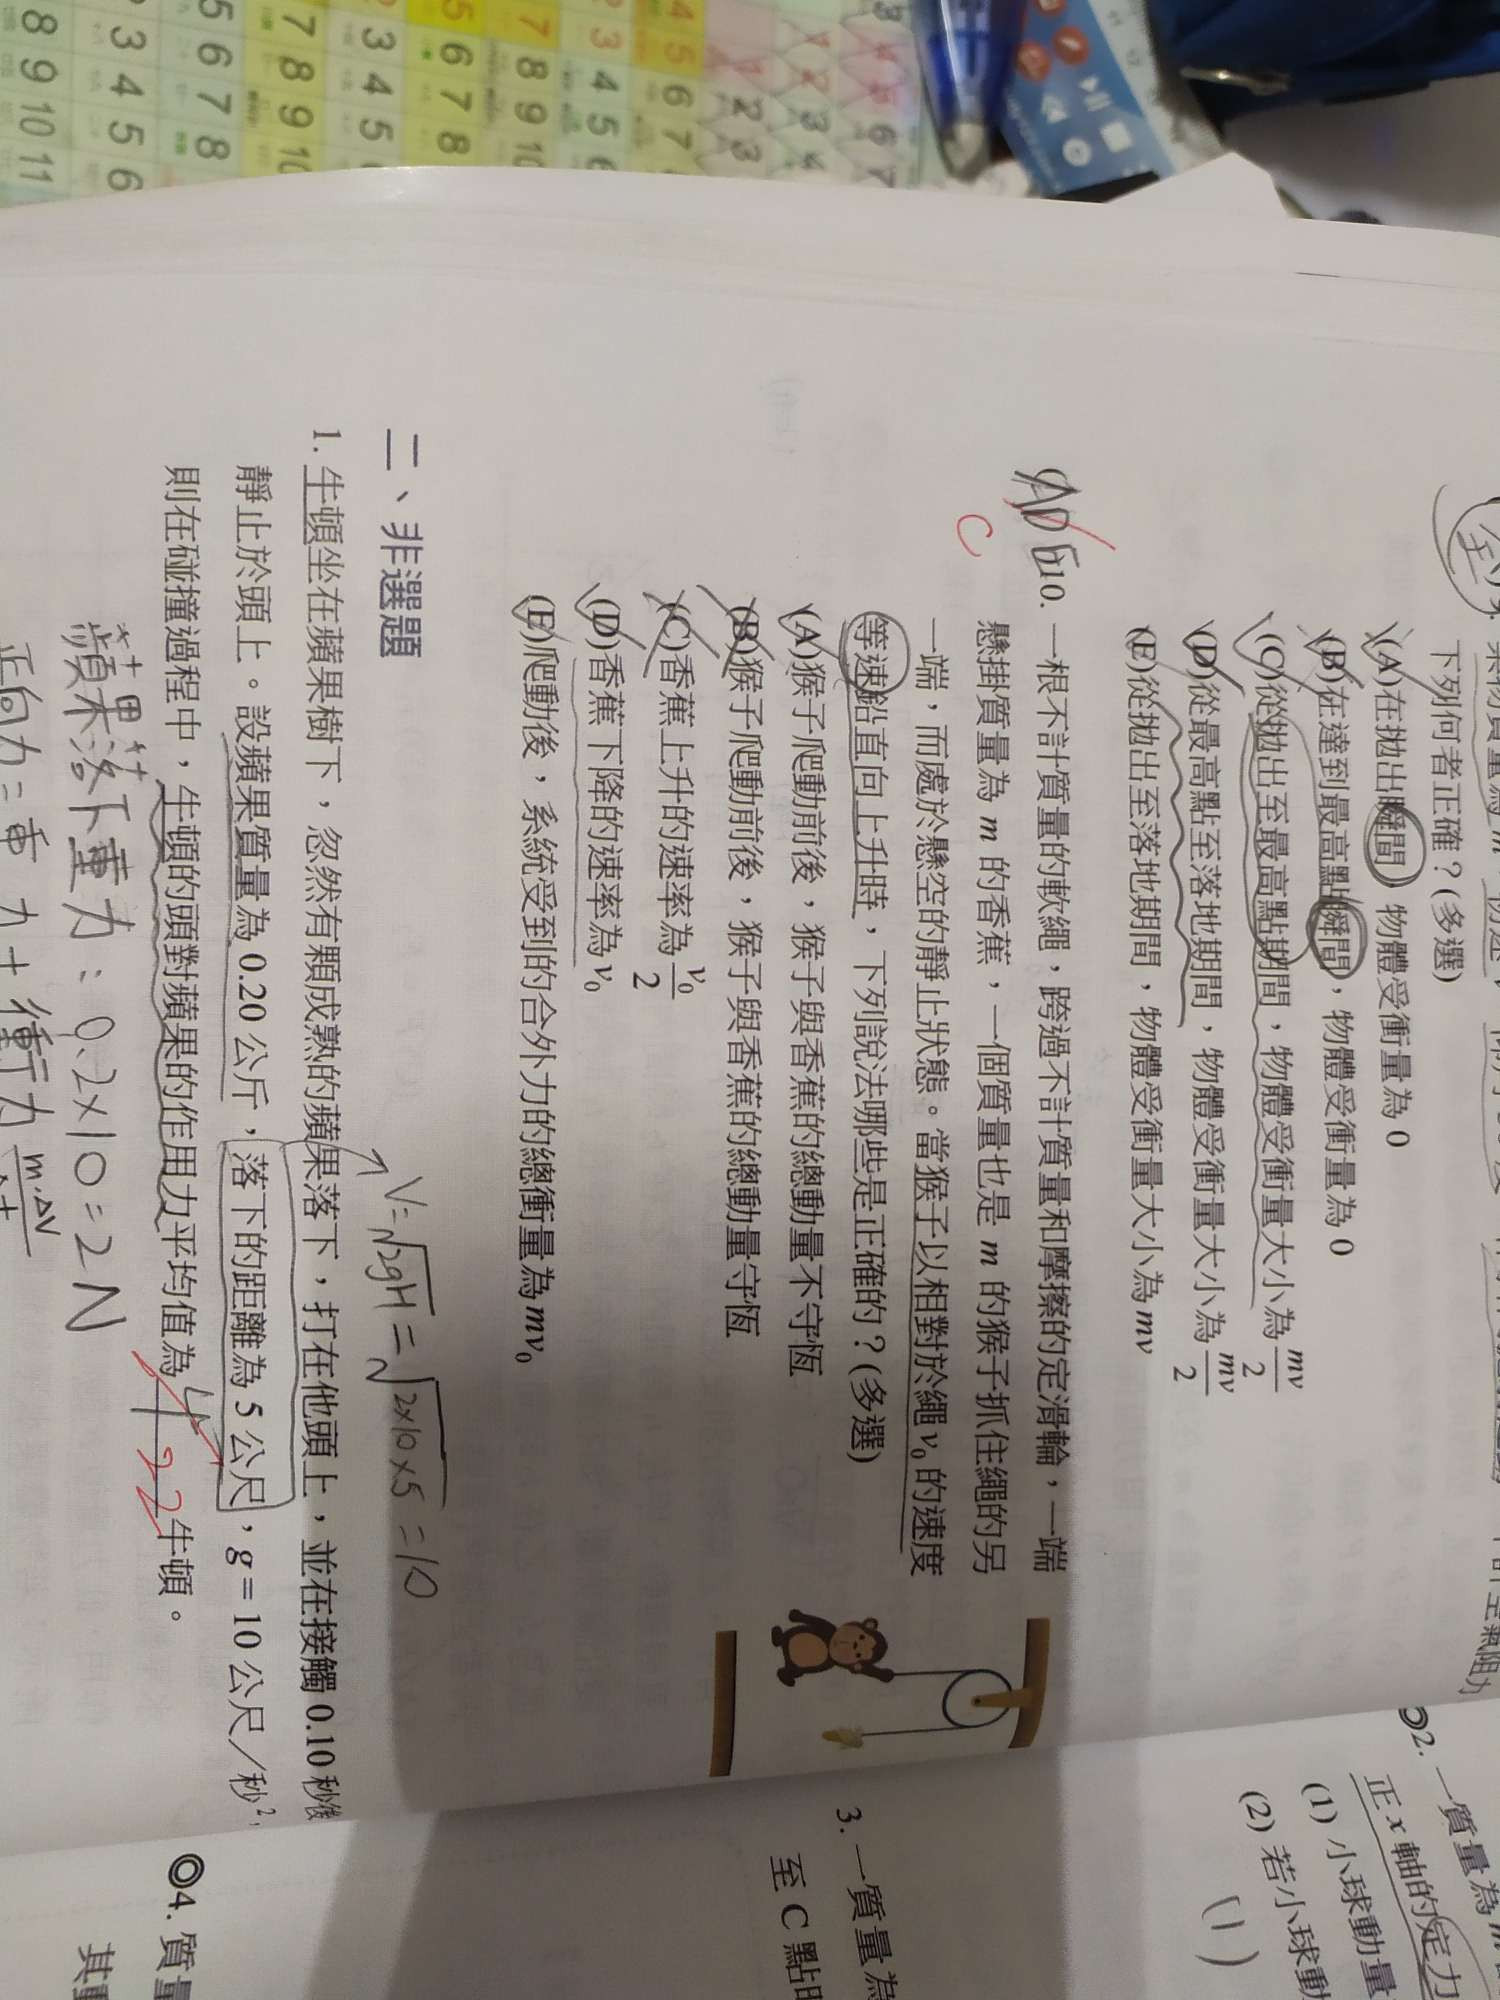 下列何者正確？(多選)
(A)在拋出瞬間，物體受衝量為 0
(B)在達到最高點瞬間，物體受衝量為 0
(C)從拋出至最高點期間，物體受衝量大小為 mv/2
(D)從最高點至落地期間，物體受衝量大小為 mv/2
(E)從拋出至落地期間，物體受衝量大小為 mv
C
10. 一根不計質量的軟繩，跨過不計質量和摩擦的定滑輪，一端
懸掛質量為 m 的香蕉，一個質量也是 m 的猴子抓住繩的另
一端，而處於懸空的靜止狀態。當猴子以相對於繩 v₀ 的速度
等速鉛直向上升時，下列說法哪些是正確的？(多選)
(A)猴子爬動前後，猴子與香蕉的總動量不守恆
(B)猴子爬動前後，猴子與香蕉的總動量守恆
(C)香蕉上升的速率為 v₀/2
(D)香蕉下降的速率為 v₀
(E)爬動後，系統受到的合外力的總衝量為 mv₀
二、非選題
V=√2gH = √2×10×5 = 10
1. 牛頓坐在蘋果樹下，忽然有顆成熟的蘋果落下，打在他頭上，並在接觸 0.10 秒後
靜止於頭上。設蘋果質量為 0.20 公斤，落下的距離為 5 公尺，g = 10 公尺／秒²，
則在碰撞過程中，牛頓的頭對蘋果的作用力平均值為 22 牛頓。
蘋果落下重力：0.2×10=2N
正向力=重力+衝力 m·ΔV
2. 一質量為
正 x 軸的定力
(1) 小球動量
(2) 若小球動
(1)
3. 一質量為
至 C 點時
◎4. 質量